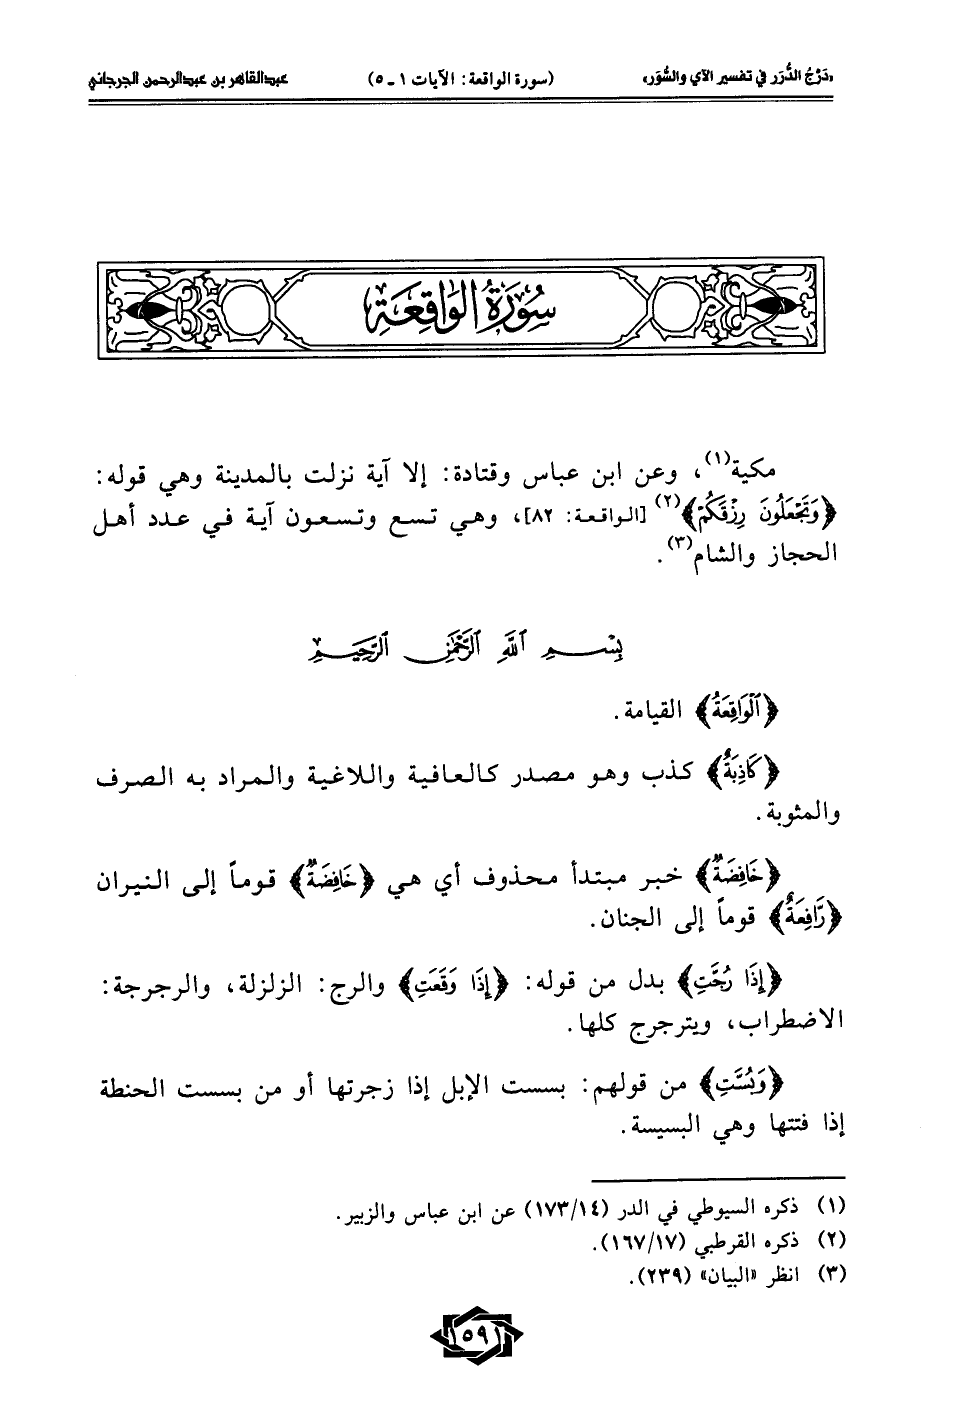 «دَرْجُ الدُّرَر في تفسير الآي والسُّوَر» (سورة الواقعة: الآيات ١ ـ ٥) عبدالقاهر بن عبدالرحمن الجرجاني
سُورَةُ الوَاقِعَةِ
مكية(١)، وعن ابن عباس وقتادة: إلا آية نزلت بالمدينة وهي قوله:
﴿وَتَجْعَلُونَ رِزْقَكُمْ﴾(٢) [الواقعة: ٨٢]، وهي تسع وتسعون آية في عدد أهل
الحجاز والشام(٣).
بِسْمِ ٱللَّهِ ٱلرَّحْمَٰنِ ٱلرَّحِيمِ
﴿ٱلْوَاقِعَةُ﴾ القيامة.
﴿كَاذِبَةٌ﴾ كذب وهو مصدر كالعافية واللاغية والمراد به الصرف
والمثوبة.
﴿خَافِضَةٌ﴾ خبر مبتدأ محذوف أي هي ﴿خَافِضَةٌ﴾ قوماً إلى النيران
﴿رَّافِعَةٌ﴾ قوماً إلى الجنان.
﴿إِذَا رُجَّتِ﴾ بدل من قوله: ﴿إِذَا وَقَعَتِ﴾ والرج: الزلزلة، والرجرجة:
الاضطراب، ويترجرج كلها.
﴿وَبُسَّتِ﴾ من قولهم: بسست الإبل إذا زجرتها أو من بسست الحنطة
إذا فتتها وهي البسيسة.
(١) ذكره السيوطي في الدر (١٧٣/١٤) عن ابن عباس والزبير.
(٢) ذكره القرطبي (١٦٧/١٧).
(٣) انظر «البيان» (٢٣٩).
١٥٩١